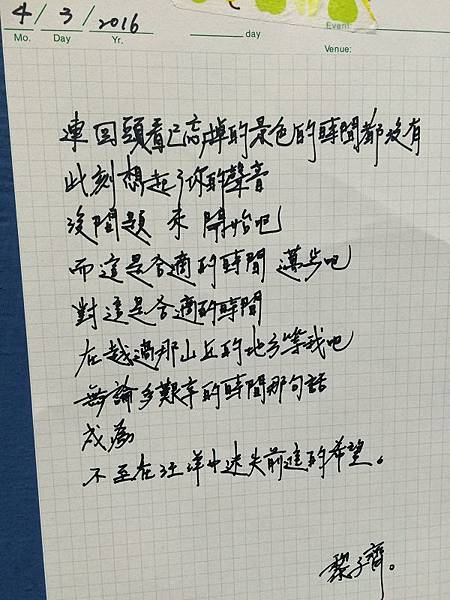 4/3/2016
Mo. Day Yr. day Event:
Venue:
連回頭看已忘掉的景色的時間都沒有
此刻想起了你的聲音
沒問題 來 開始吧
而這是合適的時間 邁步吧
對這是合適的時間
在越過那山丘的地方等我吧
無論多艱辛的時間那句話
成為
不至在汪洋中迷失前進的希望。
黎子齊。